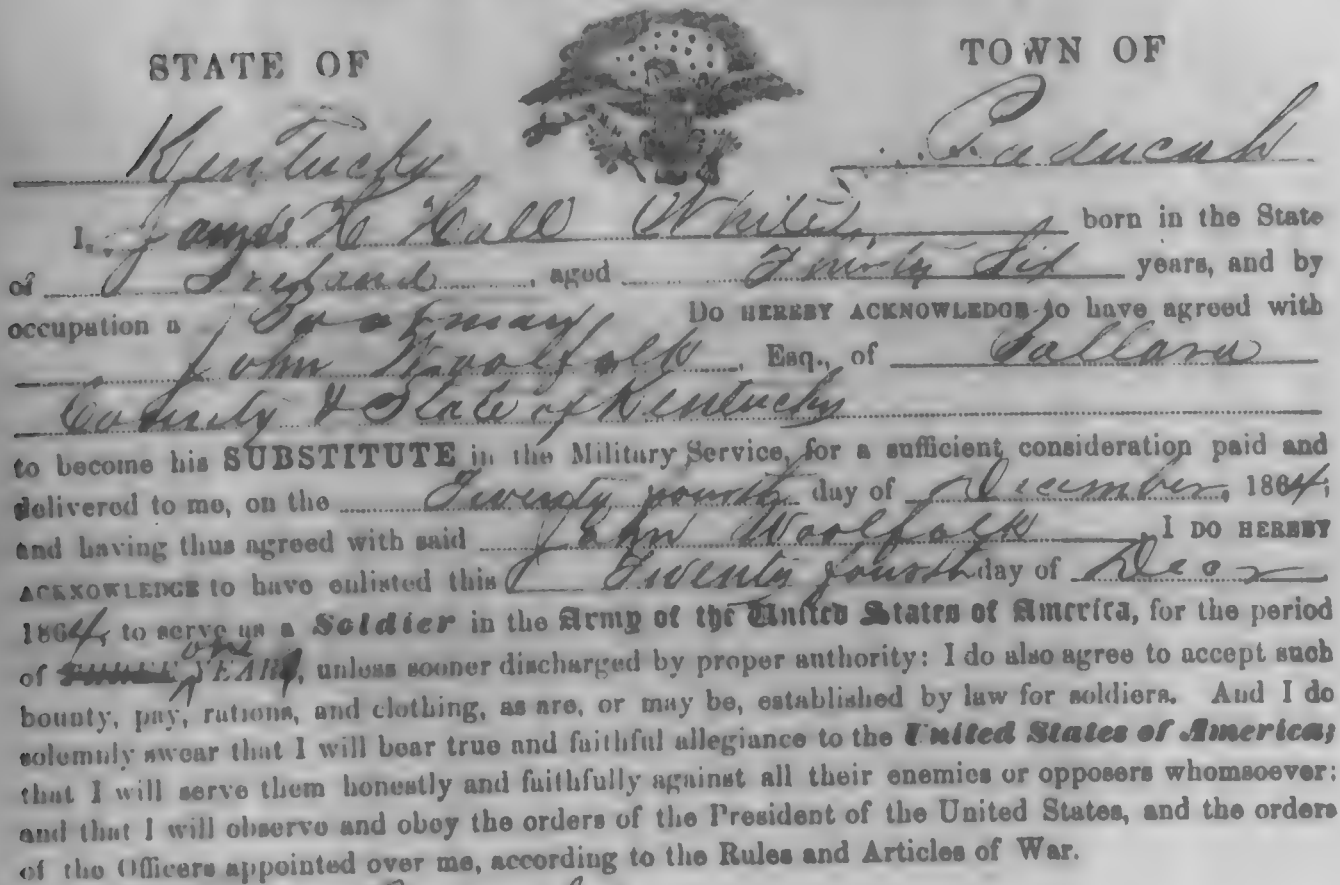 STATE OF TOWN OF
Kentucky Paducah
I, James H Hall White, born in the State
of Ireland, aged Thirty Six years, and by
occupation a Boatman Do HEREBY ACKNOWLEDGE to have agreed with
John Woolfolk, Esq., of Ballard
County & State of Kentucky
to become his SUBSTITUTE in the Military Service, for a sufficient consideration paid and
delivered to me, on the Twenty fourth day of December, 1864;
and having thus agreed with said John Woolfolk, I DO HEREBY
ACKNOWLEDGE to have enlisted this Twenty fourth day of Decr
1864, to serve as a Soldier in the Army of the United States of America, for the period
of one YEAR, unless sooner discharged by proper authority: I do also agree to accept such
bounty, pay, rations, and clothing, as are, or may be, established by law for soldiers. And I do
solemnly swear that I will bear true and faithful allegiance to the United States of America;
that I will serve them honestly and faithfully against all their enemies or opposers whomsoever:
and that I will observe and obey the orders of the President of the United States, and the orders
of the Officers appointed over me, according to the Rules and Articles of War.